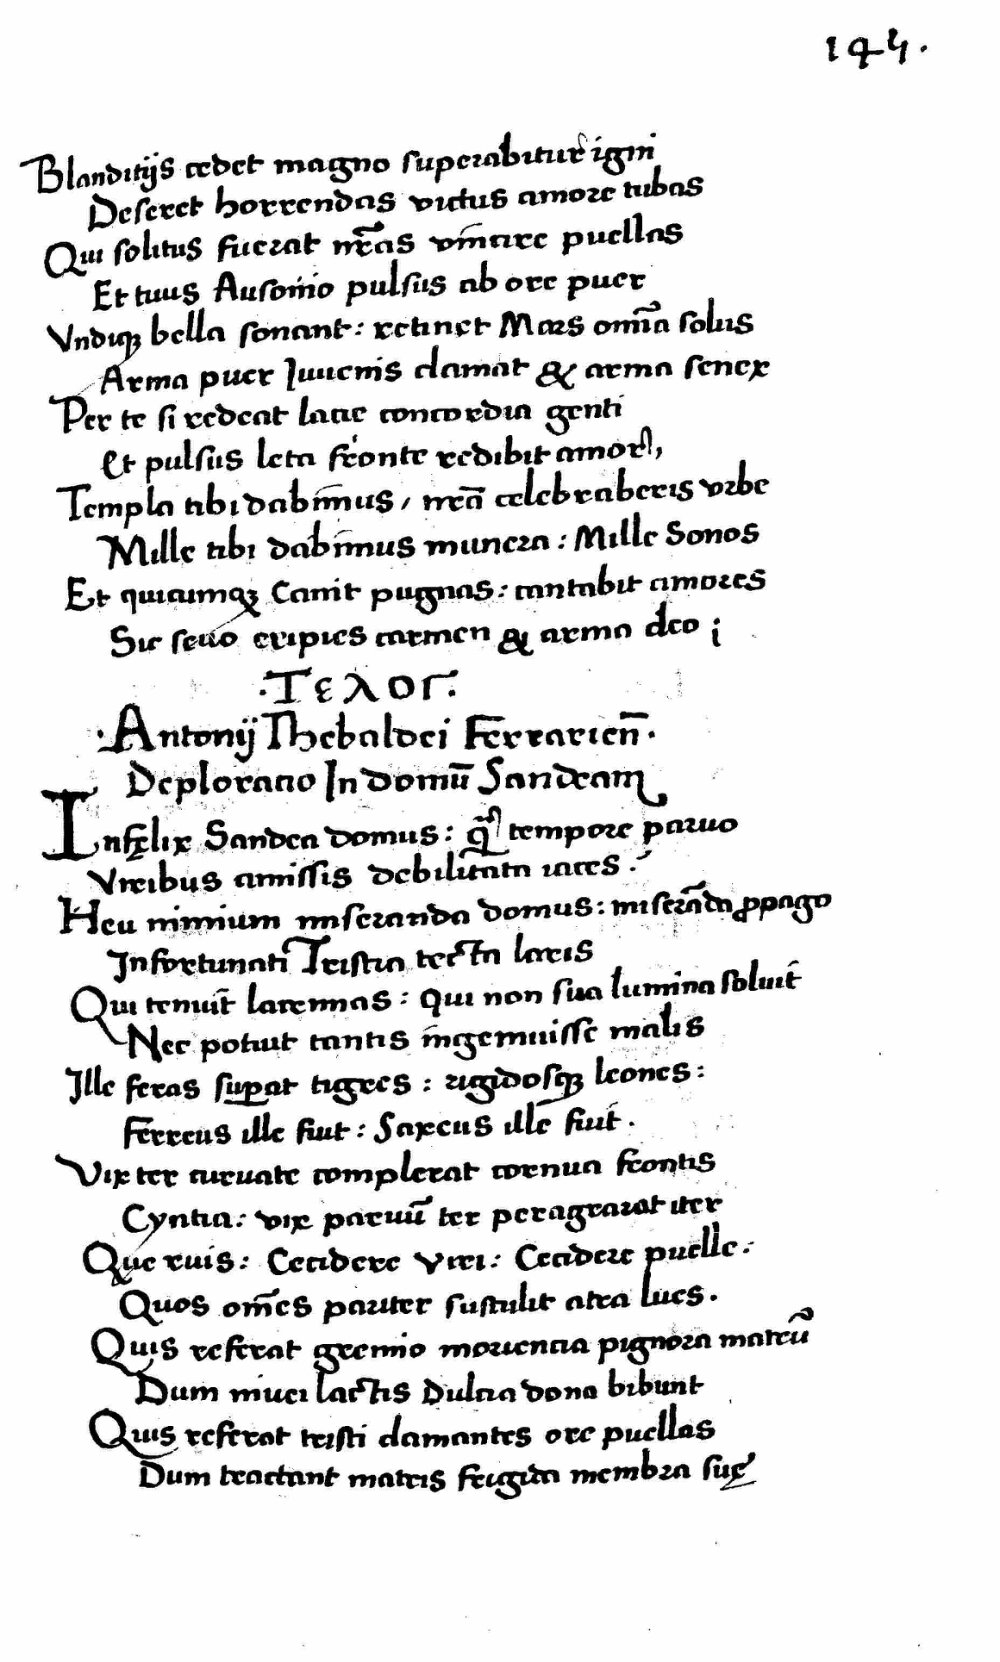 194.
Blanditijs cedet magno superabitur igni
Deseret horrendas victus amore tubas
Qui solitus fuerat nr̃as vĩtare puellas
Et tuus Ausonio pulsus ab ore puer
Vndiqꝫ bella sonant: retinet Mars om̃ia solus
Arma puer Iuuenis clamat & arma senex
Per te si redeat lacie concordia genti
Et pulsus leta fronte redibit amor,
Templa tibi dabim̃us, nr̃a celebraberis vrbe
Mille tibi dabim̃us munera: Mille Sonos
Et quicumqꝫ Canit pugnas: cantabit amores
Sic seuo eripies carmen & arma deo ;
.Τελος.
.Antonij Thebaldei Ferrarien̄.
Deploratio In domũ Sandeam
Infęlix Sandea domus: q̃ tempore paruo
Viribus amissis debilitata iaces:
Heu nimium miseranda domus: miserãda ꝓpago
Infortunati Tristia tecta laris
Qui tenuit̃ lacrimas: Qui non sua lumina soluit̃
Nec potuit tantis ingemuisse malis
Ille feras suꝑat tigres: rigidosqꝫ leones:
Ferreus ille fuit: Saxeus ille fuit.
Vix ter curuate complerat cornua frontis
Cyntia: vix paruũ ter peragrarat iter
Que ruis: Cecidere Viri: Cecidere puelle:
Quos om̃es pariter sustulit atra lues.
Quis referat gremio morientia pignora matrũ
Dum niuei lactis Dulcia dona bibunt
Quis referat tristi clamantes ore puellas
Dum tractant matris frigida membra suę